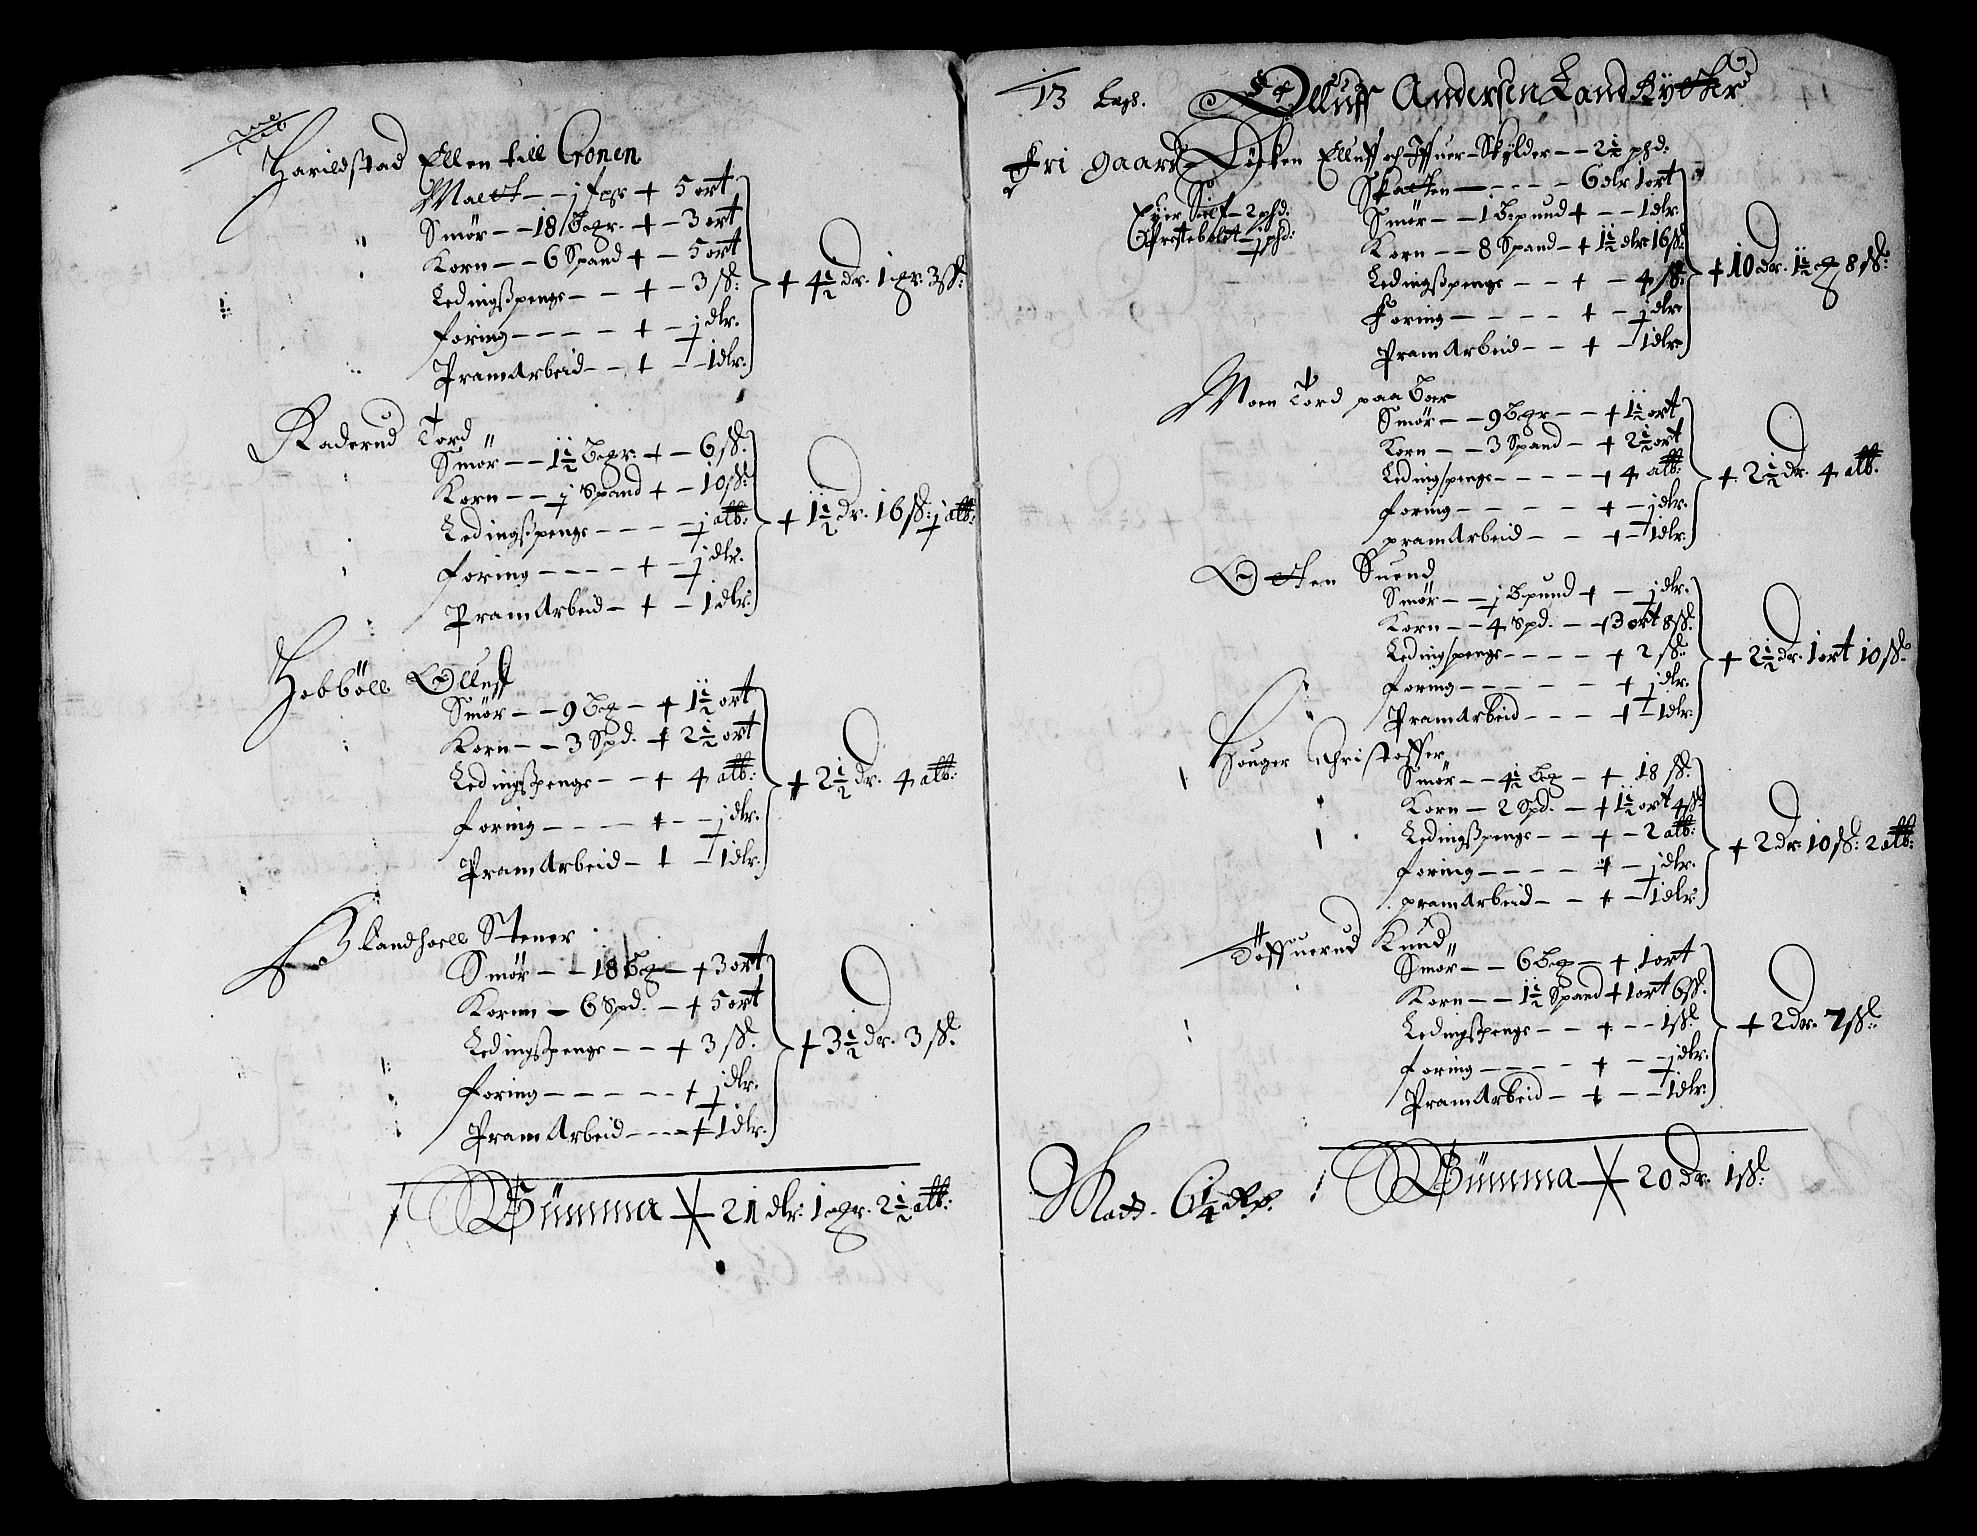 Harildstad Ellen till Cronen
Malt - - j fgr + 5 ort
Smør - - 18 Bgr. + - 3 ort
Korn - - 6 Spand + - 5 ort
Ledingsspenge - - + - 3 sk:
foring - - - - - + - j dlr.
PramArbeid - - + - - 1 dlr.
+ 4½ dr. 1 gr. 3 sk:
Raderud Tord
Smør - - 1½ Bgr: + - 6 sk.
Korn - - j Spand + - 10 sk:
Ledingsspenge - - - - j alb:
foring - - - - + - j dlr.
PramArbeid - + - 1 dlr.
+ 1½ dr. 16 sk: j alb:
Hobböll Olluff
Smør - - 9 Bg - + 1½ ort
Korn - - 3 Spd. + 2½ ort
Ledingsspenge - - + 4 alb:
foring - - - - + - - j dlr.
PramArbeid - + - 1 dlr.
+ 2½ dr. 4 alb:
Blandhoell Stener
Smør - - 18 Bg - + 3 ort
Kornn - 6 Spd. - + 5 ort
Ledingsspenge - - + 3 sk.
foring - - - - - - + j dlr.
PramArbeid - - - + 1 dlr.
+ 3½ dr. 3 sk.
Summa + 21 dlr. 1 gr. 2½ alb:
13 Legh. Olluff Andersen Land Rytter
Fri gaard Locken Elluff och Iffuer - Skylder - - 2½ phd:
Eyer Sielf - 2 phd:
Prestebolet - ½ phd:
Skatten - - - - 6 dlr 1 ort
Smør - - 1 Bpund + - - 1 dlr.
Korn - - 8 Spand - + 1½ dlr 16 sk:
Ledingsspenge - - + - 4 sk:
Foring - - - - - + - j dlr
PramArbeid - - + - 1 dlr
+ 10 dr. 1½ g 8 sk:
Moen Tord paa Ber
Smør - - 9 Bgr - - + 1½ ort
Korn - - 3 Spand - + 2½ ort
Ledingspenge - - - - + 4 alb:
foring - - - - - + - j dlr.
pramArbeid - - + - 1 dlr.
+ 2½ dr. 4 alb.
Octen Suend
Smør - - j Bpund + - j dlr.
Korn - - 4 Spd. - + 3 ort 8 sk.
Ledingspenge - - - - + 2 sk:
foring - - - - - + j dlr.
PramArbeid - - - + - 1 dlr.
+ 2½ dr. 1 ort 10 sk.
Houger Christoffer
Smør - - 4½ Bg - + 18 sk.
Korn - 2 Spd. - + 1½ ort 4 sk.
Ledingsspenge - - + - 2 alb:
foring - - - - - + - j dlr.
pramArbeid - - + - 1 dlr.
+ 2 dr. 10 sk: 2 alb:
Töffuerud Knud
Smør - - 6 Bg - + 1 ort
Korn - - 1½ Spand + 1 ort 6 sk.
Ledingsspenge - - + - - 1 sk
foring - - - - - + - - j dlr.
PramArbeid - + - - 1 dlr.
+ 2 dr. 7 sk:
Summa + 20 dr. 1 sk.
Matt. 6¼ dlr.